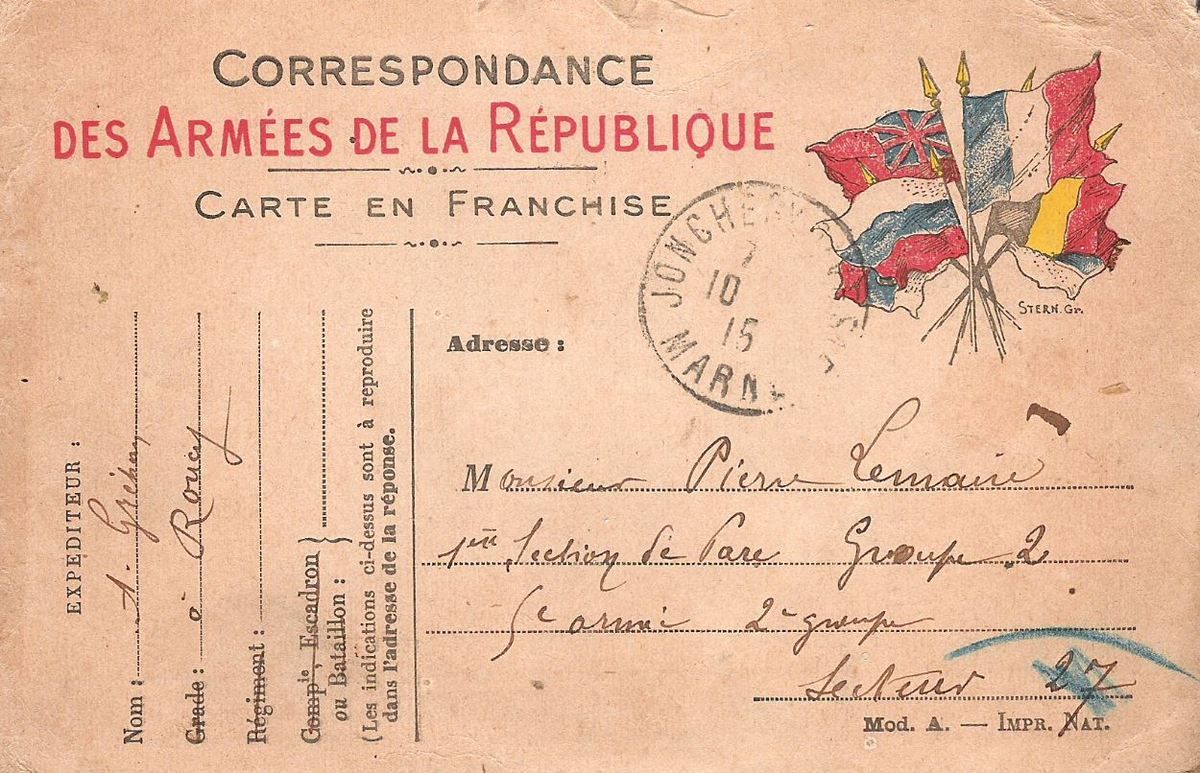 CORRESPONDANCE
DES ARMÉES DE LA RÉPUBLIQUE
CARTE EN FRANCHISE
JONCHERY
MARNE
7
10
15
STERN. Gr.
Adresse :
Monsieur Pierre Lemaire
1ère Section de Parc Groupe 2
5e armée 2e groupe
Secteur 27
Mod. A. — IMPR. NAT.
EXPÉDITEUR :
Nom :
Grade : à Roucy
Régiment :
Compie, Escadron
ou Bataillon :
(Les indications ci-dessus sont à reproduire
dans l'adresse de la réponse.